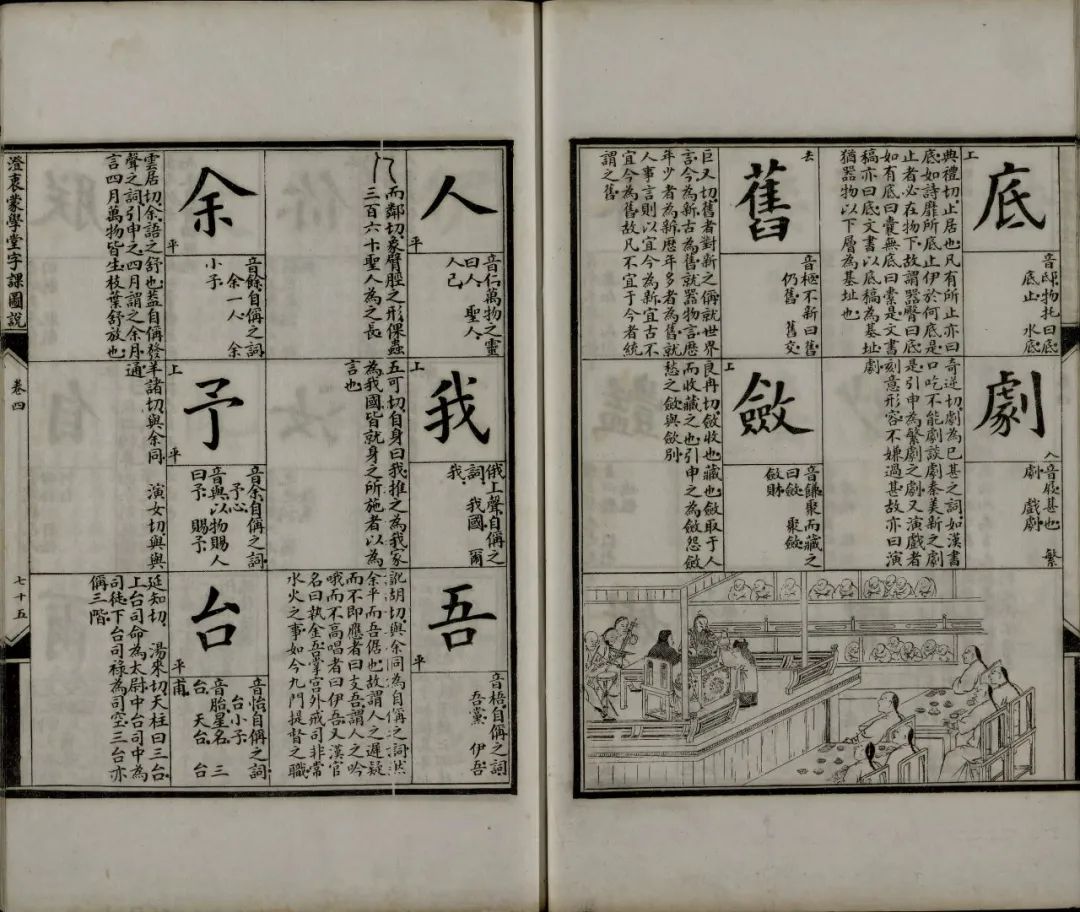 底
上
音邸物托曰底
底止 水底
典禮切止居也凡有所止亦曰
底如詩靡所底止伊於何底是
止者必在物下故謂器臀曰底
如有底曰囊無底曰橐是文書
稿亦曰底文書以底稿為基址
猶器物以下層為基址也
舊
去
音柩不新曰舊
仍舊 舊交
巨又切舊者對新之稱就世界
言今為新古為舊就器物言歷
年少者為新歷年多者為舊就
人事言則以宜今為新宜古不
宜今為舊故凡不宜于今者統
謂之舊
劇
入
音屐甚也 繁
劇 戲劇
奇逆切劇為已甚之詞如漢書
口吃不能劇談劇秦美新之劇
是引申為繁劇之劇又演戲者
刻意形容不嫌過甚故亦曰演
劇
斂
上
音鎌聚而藏之
曰斂 聚斂
斂財
良冉切斂收也藏也斂取于人
而收藏之也引申之為斂怨斂
愁之斂與歛別
人
平
音仁萬物之靈
曰人 聖人
人己
而鄰切象臂脛之形倮蟲
三百六十聖人為之長
余
平
音餘自稱之詞
余一人 余
小子
雲居切余語之舒也蓋自稱發
聲之詞引申之四月謂之余月
言四月萬物皆生枝葉舒放也
我
上
俄上聲自稱之
詞 我國 爾
我
五可切自身曰我推之為我家
為我國皆就身之所施者以為
言也
予
上
平
音余自稱之詞
予心
音與以物賜人
曰予 賜予
羊諸切與余同 演女切與與
通
吾
平
音梧自稱之詞
吾黨 伊吾
訛胡切與余同為自稱之詞然
余平而吾倨也故謂人之遲疑
而不即應者曰支吾謂人之吟
哦而不高唱者曰伊吾又漢官
名曰執金吾掌宮外戒司非常
水火之事如今九門提督之職
台
平
音怡自稱之詞
台小子
音胎星名 三
台 天台 台
甫
延知切 湯來切天柱曰三台
上台司命為太尉中台司中為
司徒下台司祿為司空三台亦
稱三階
澄衷蒙學堂字課圖說
卷四
七十五